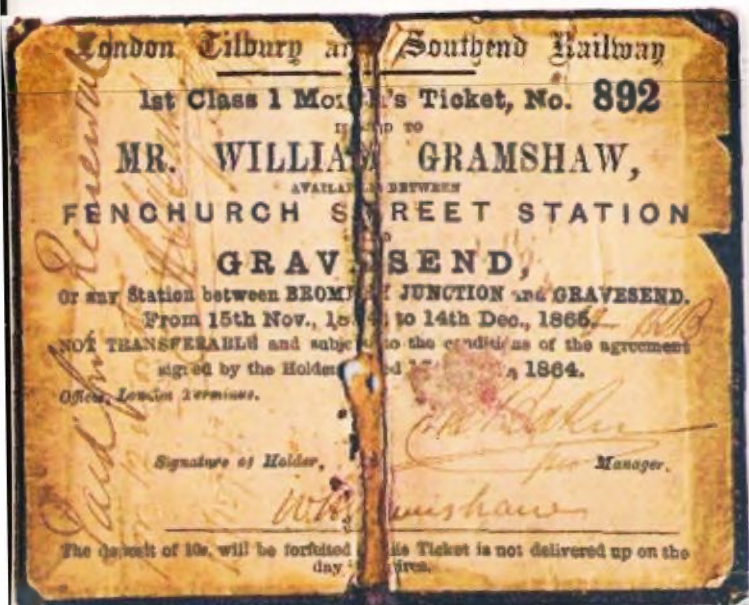 London Tilbury and Southend Railway
1st Class 1 Month's Ticket, No. 892
ISSUED TO
MR. WILLIAM GRAMSHAW,
AVAILABLE BETWEEN
FENCHURCH STREET STATION
AND
GRAVESEND,
Or any Station between BROMLEY JUNCTION and GRAVESEND.
From 15th Nov., 186 to 14th Dec., 186
NOT TRANSFERABLE and subject to the conditions of the agreement
signed by the Holder, dated 1864.
Offices, London Terminus.
Signature of Holder,
Manager.
W Gramshaw
The deposit of 10s. will be forfeited if this Ticket is not delivered up on the
day it expires.
Paid for Renewal